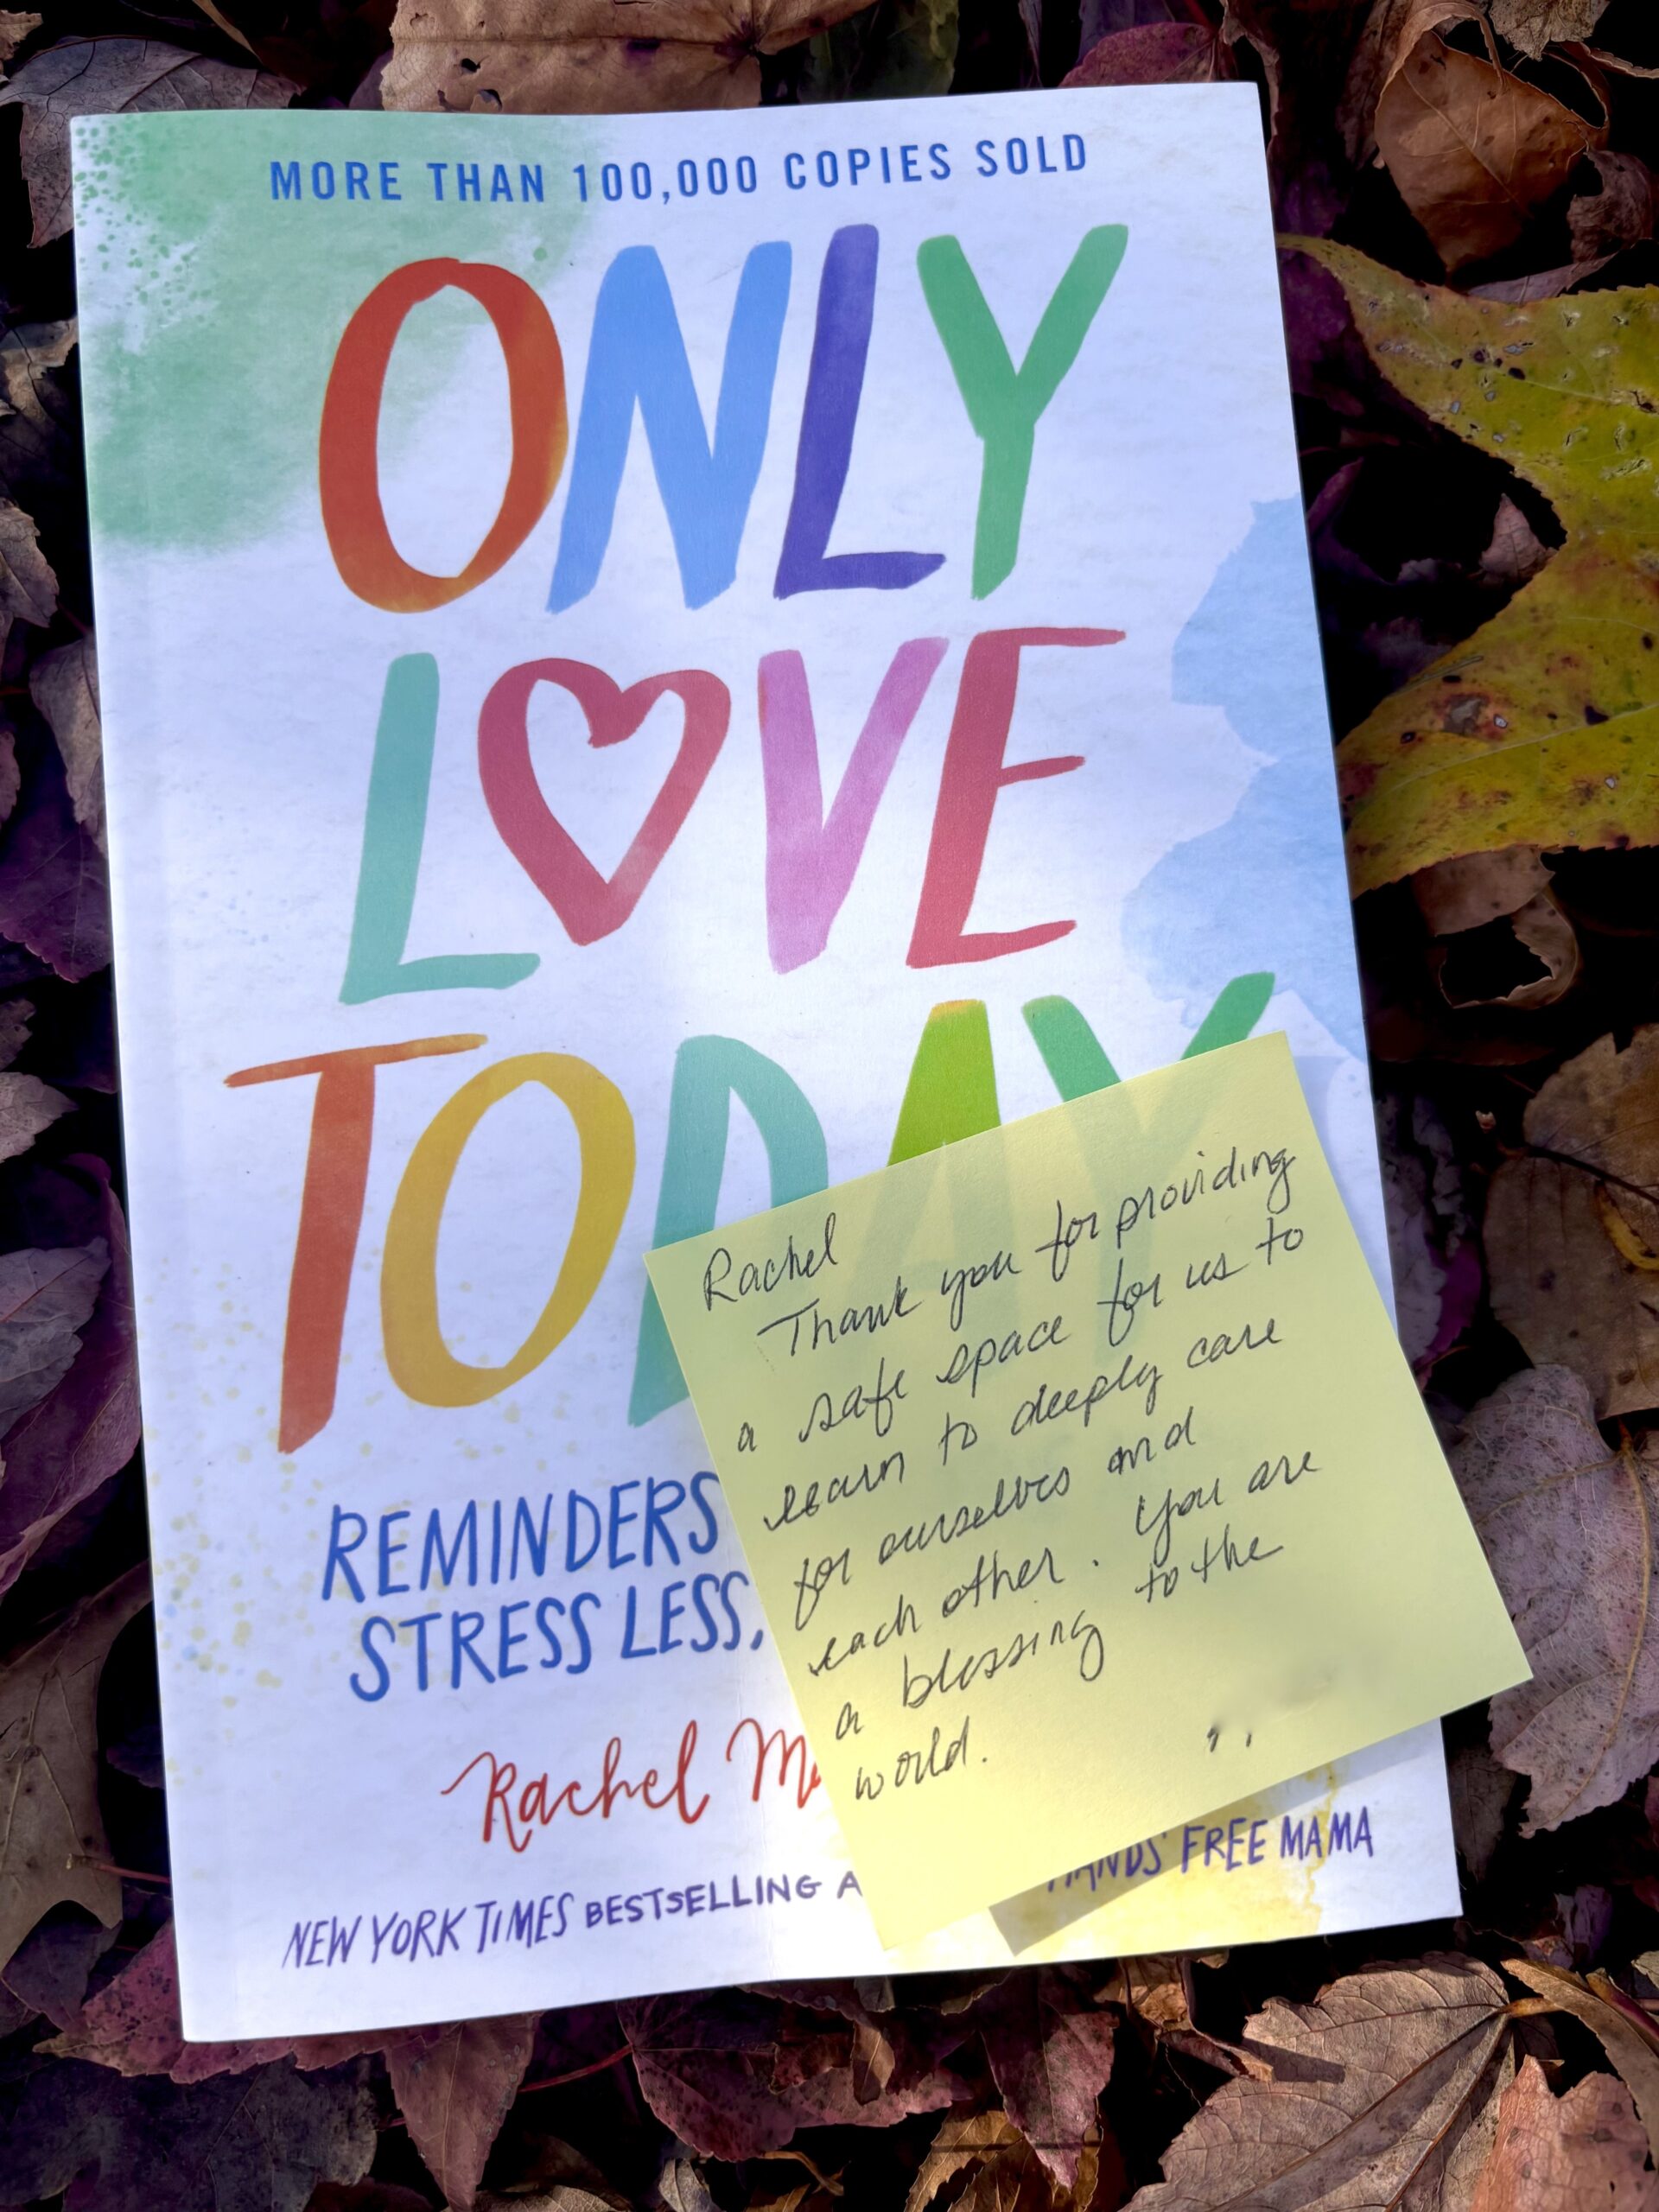 MORE THAN 100,000 COPIES SOLD
ONLY
LOVE
TODAY
REMINDERS
STRESS LESS,
Rachel M
NEW YORK TIMES BESTSELLING A
HANDS FREE MAMA
Rachel
Thank you for providing
a safe space for us to
learn to deeply care
for ourselves and
each other. You are
a blessing to the
world.